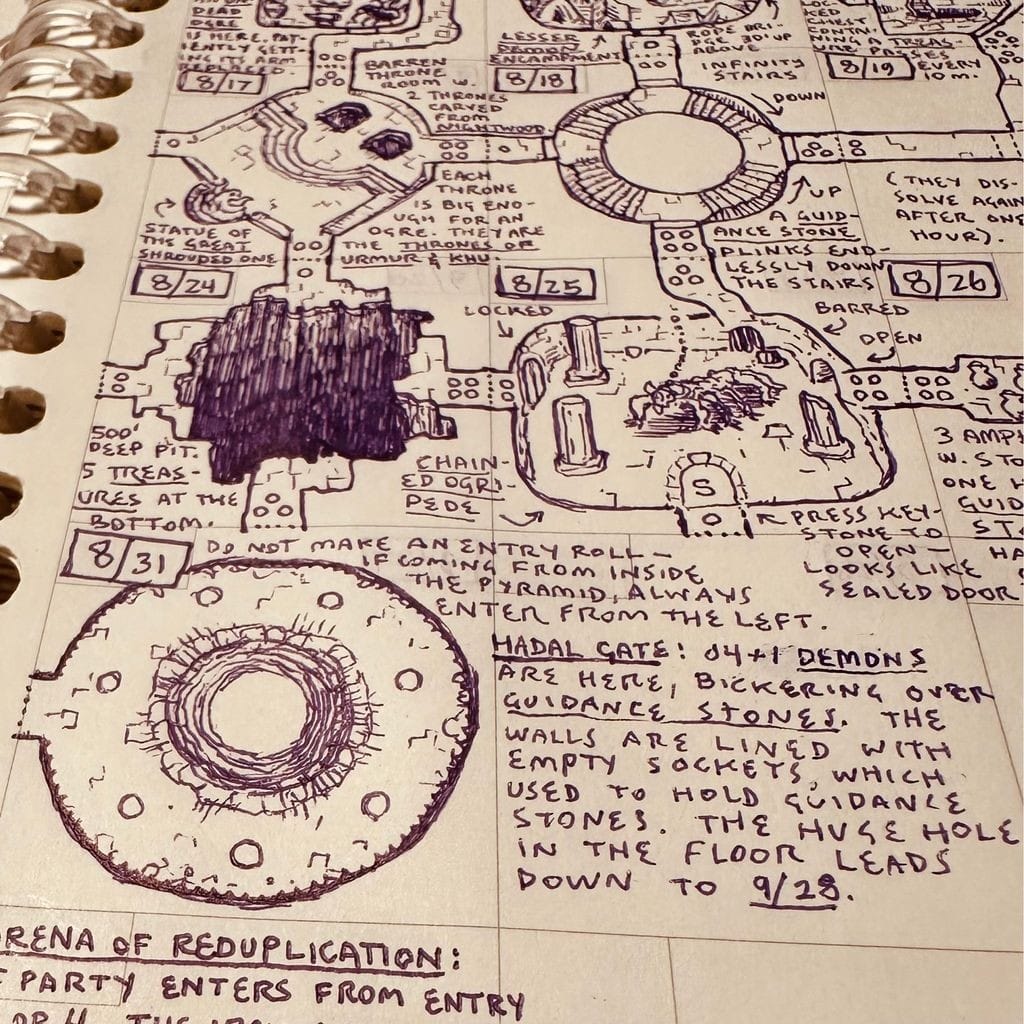 DERE
IS HERE, PAT-
IENTLY GETT-
ING ITS ARM
8/17
BARREN
THRONE
ROOM W.
2 THRONES
CARVED
FROM
NIGHTWOOD
EACH
THRONE
IS BIG ENO-
UGH FOR AN
OGRE. THEY ARE
THE THRONES OF
URMUR & KHU.
STATUE OF
THE GREAT
SHROUDED ONE
LESSER
DEMON
ENCAMPMENT
8/18
ROPE BRI-
DGE 30' UP
ABOVE
INFINITY
STAIRS
DOWN
UP
A GUID-
ANCE STONE
PLINKS END-
LESSLY DOWN
THE STAIRS
LOC-
KED
CHEST
CONTAI-
NING
TREAS-
URES
8/19
EVERY
10 M.
(THEY DIS-
SOLVE AGAIN
AFTER ONE
HOUR).
8/24
500'
DEEP PIT.
5 TREAS-
URES AT THE
BOTTOM.
8/25
LOCKED
BARRED
OPEN
CHAIN-
ED OGRI-
PEDE
S
PRESS KEY-
STONE TO
OPEN-
LOOKS LIKE
SEALED DOOR
8/26
3 AMPH
W. STO
ONE H
GUID
ST
HA
8/31
DO NOT MAKE AN ENTRY ROLL-
IF COMING FROM INSIDE
THE PYRAMID, ALWAYS
ENTER FROM THE LEFT.
HADAL GATE: d4+1 DEMONS
ARE HERE, BICKERING OVER
GUIDANCE STONES. THE
WALLS ARE LINED WITH
EMPTY SOCKETS, WHICH
USED TO HOLD GUIDANCE
STONES. THE HUGE HOLE
IN THE FLOOR LEADS
DOWN TO 9/28.
RENA OF REDUPLICATION:
PARTY ENTERS FROM ENTRY
OR 4. THE